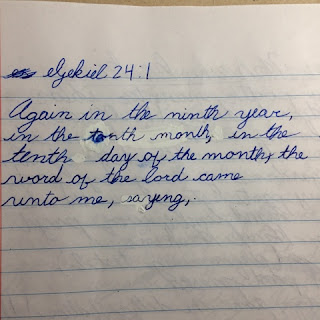 ezekiel 24:1
Again in the ninth year,
in the tenth month, in the
tenth day of the month, the
word of the lord came
unto me, saying,